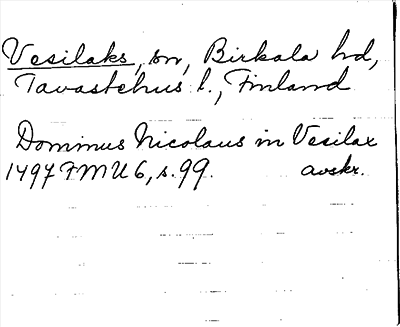 Vesilaks, sn, Birkala hd,
Tavastehus l., Finland
Dominus Nicolaus in Vesilax
1497 FMU 6, s. 99. avskr.